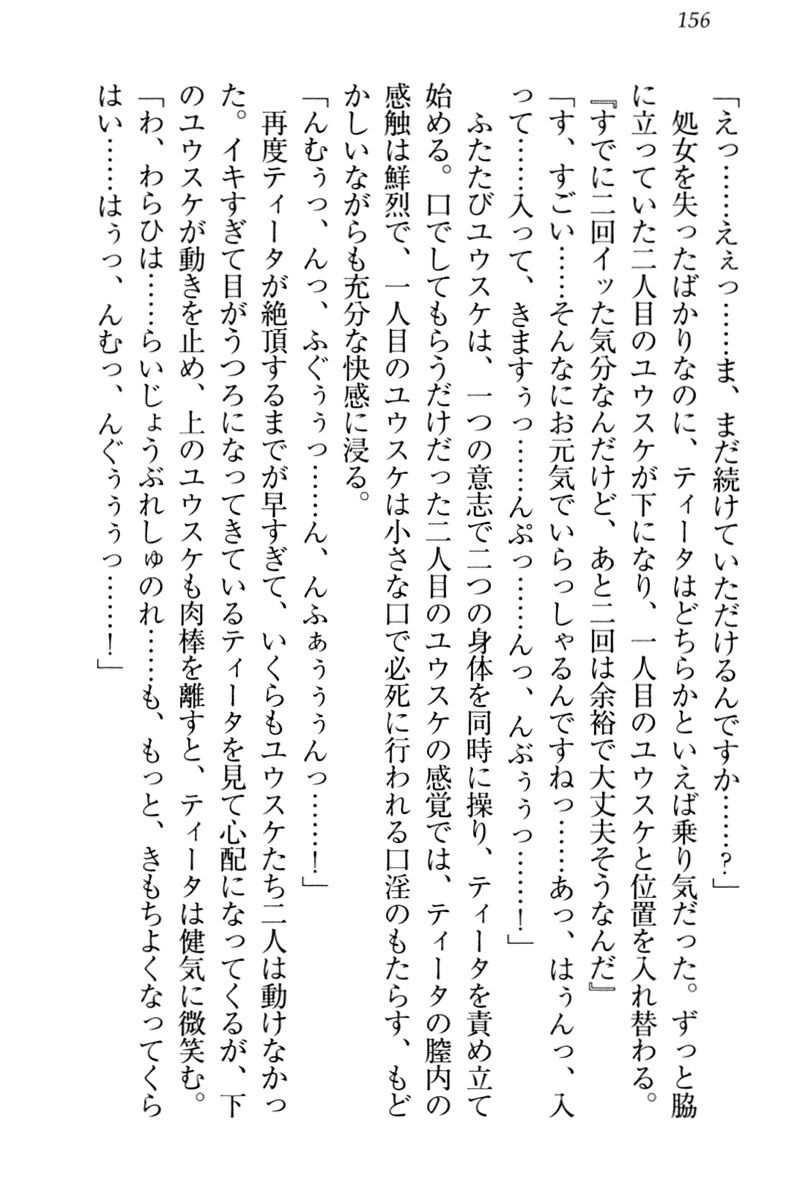 156
「えっ……えぇっ……ま、まだ続けていただけるんですか……？」
処女を失ったばかりなのに、ティータはどちらかといえば乗り気だった。ずっと脇
に立っていた二人目のユウスケが下になり、一人目のユウスケと位置を入れ替わる。
『すでに二回イッた気分なんだけど、あと二回は余裕で大丈夫そうなんだ』
「す、すごい……そんなにお元気でいらっしゃるんですねっ……あっ、はぅんっ、入
って……入って、きますぅっ……んぷっ……んっ、んぶぅぅっ……！」
ふたたびユウスケは、一つの意志で二つの身体を同時に操り、ティータを責め立て
始める。口でしてもらうだけだった二人目のユウスケの感覚では、ティータの膣内の
感触は鮮烈で、一人目のユウスケは小さな口で必死に行われる口淫のもたらす、もど
かしいながらも充分な快感に浸る。
「んむぅっ、んっ、ふぐぅぅっ……ん、んふぁぅぅぅんっ……！」
再度ティータが絶頂するまでが早すぎて、いくらもユウスケたち二人は動けなかっ
た。イキすぎて目がうつろになってきているティータを見て心配になってくるが、下
のユウスケが動きを止め、上のユウスケも肉棒を離すと、ティータは健気に微笑む。
「わ、わらひは……らいじょうぶれしゅのれ……も、もっと、きもちよくなってくら
はい……はぅっ、んむっ、んぐぅぅぅっ……！」